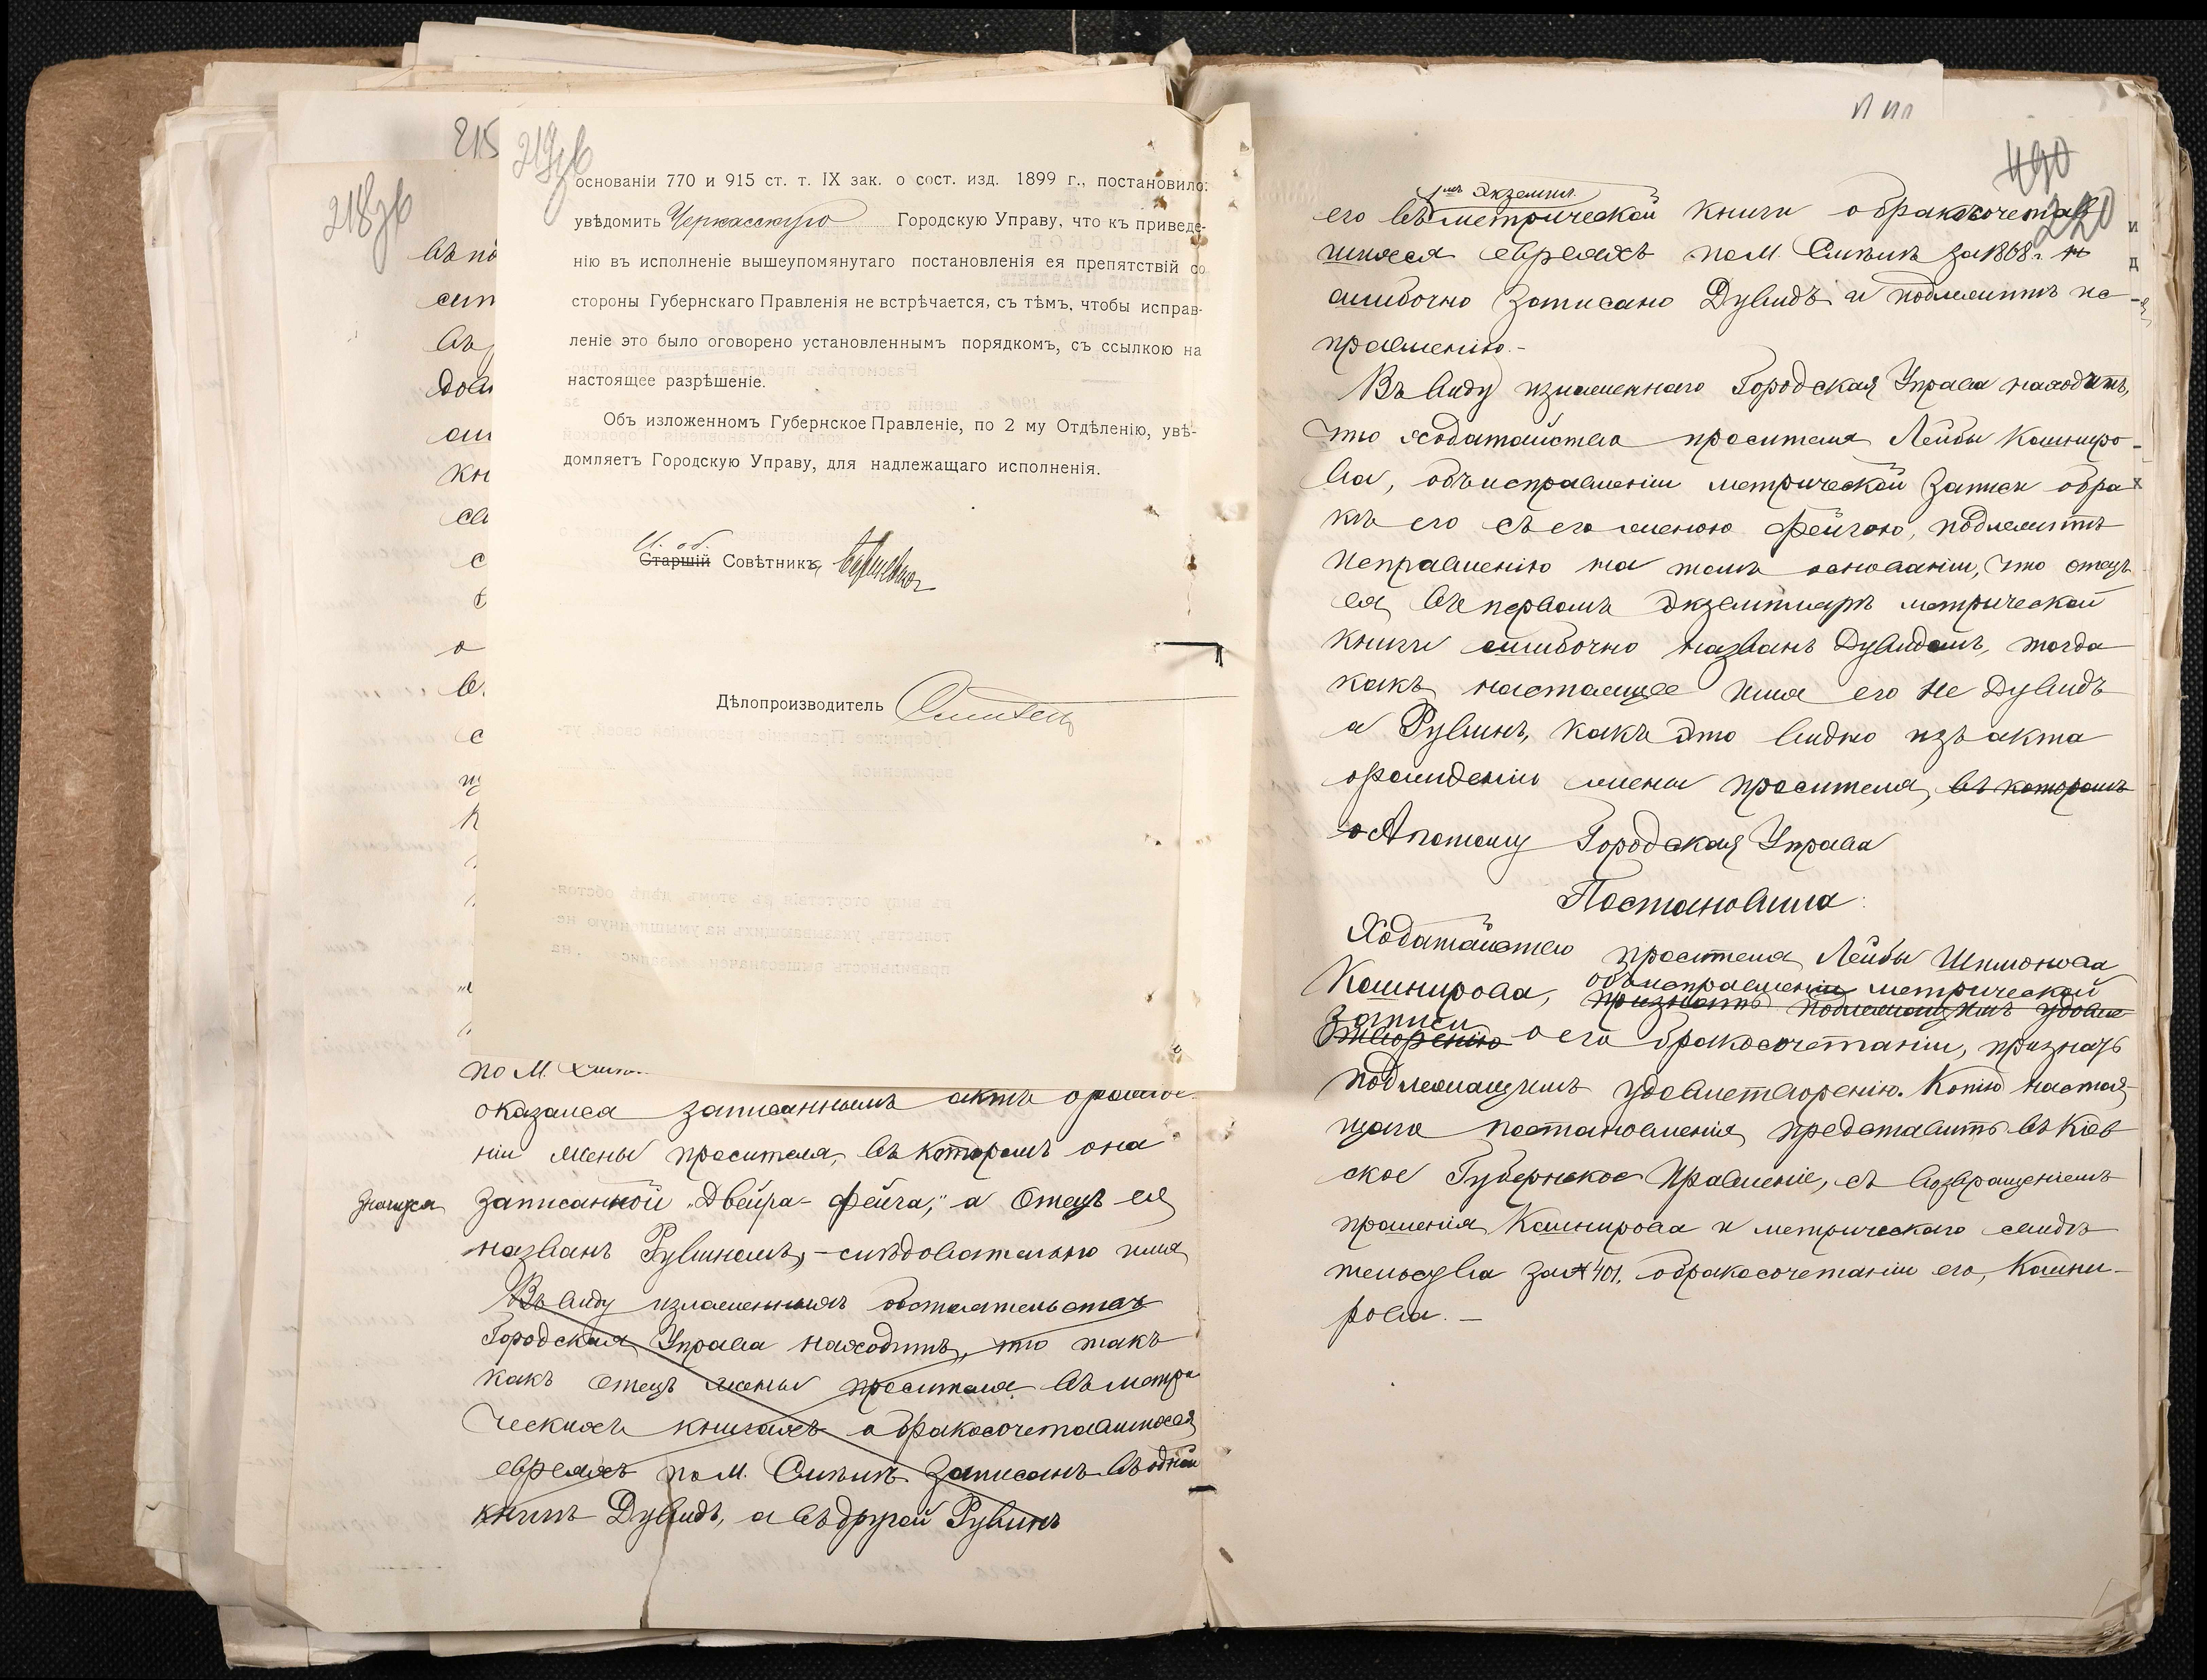 215
219об
основаніи 770 и 915 ст. т. IX зак. о сост. изд. 1899 г., постановило:
увѣдомить Черкасскую Городскую Управу, что къ приведе-
нію въ исполненіе вышеупомянутаго постановленія ея препятствій со
стороны Губернскаго Правленія не встрѣчается, съ тѣмъ, чтобы исправ-
леніе это было оговорено установленнымъ порядкомъ, съ ссылкою на
настоящее разрѣшеніе.
Объ изложенномъ Губернское Правленіе, по 2 му Отдѣленію, увѣ-
домляетъ Городскую Управу, для надлежащаго исполненія.
И. об.
Старшій Совѣтника
Дѣлопроизводитель
218об
по М.
оказался записаннымъ актъ о рожде-
ніи жены просителя, въ которомъ она
значится записанной „Двейра-Фейга," а Отецъ ея
названъ Рувиномъ, - слѣдовательно имя
Въ виду изложенныхъ обстоятельствъ
Городская Управа находитъ, что такъ
какъ отецъ жены просителя въ метри
ческихъ книгахъ о бракосочетавшихся
евреяхъ по М. Смѣлѣ записанъ въ одной
книгѣ Дувидъ, а въ другой Рувинъ
490
220
1мъ Экземпл.
его въ метрической книги о бракосочетав
шихся евреяхъ по М. Смѣлѣ за 1868 г.
ошибочно записано Дувидъ и подлежитъ ис
правленію.-
Въ виду изложеннаго Городская Управа находитъ,
что ходатайство просителя Лейбы Кашниро-
ва, объ исправленіи метрической записи о бра
кѣ его съ его женою Фейгою, подлежитъ
исправленію на томъ основаніи, что отецъ
ея въ первомъ экземплярѣ метрической
книги ошибочно названъ Дувидомъ, тогда
какъ настоящее имя его не Дувидъ
а Рувинъ, какъ это видно изъ акта
о рожденіи жены просителя, въ которомъ
А потому Городская Управа
Постановила:
Ходатайство просителя Лейбы Шимонова
Кашнирова, объ исправленіи метрической
признать подлежащимъ удовле
записи
творенію о его бракосочетаніи, признать
подлежащимъ удовлетворенію. Копію настоя-
щаго постановленія представить въ Кіев
ское Губернское Правленіе, съ возвращеніемъ
прошенія Кашнирова и метрическаго свидѣ
тельства за № 401, о бракосочетаніи его, Кашни-
рова. -